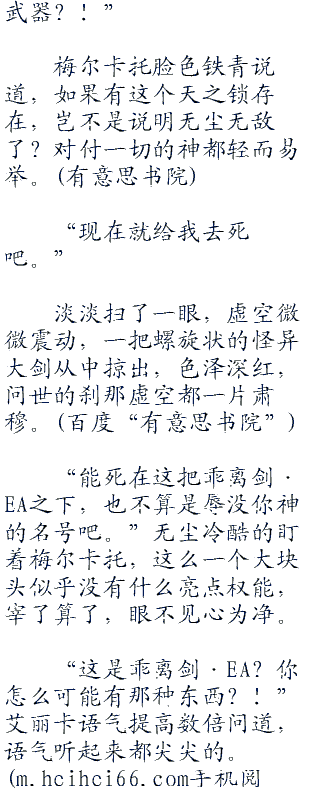 武器？！”
梅尔卡托脸色铁青说
道，如果有这个天之锁存
在，岂不是说明无尘无敌
了？对付一切的神都轻而易
举。(有意思书院)
“现在就给我去死
吧。”
淡淡扫了一眼，虚空微
微震动，一把螺旋状的怪异
大剑从中掠出，色泽深红，
问世的刹那虚空都一片肃
穆。(百度“有意思书院”)
“能死在这把乖离剑·
EA之下，也不算是辱没你神
的名号吧。”无尘冷酷的盯
着梅尔卡托，这么一个大块
头似乎没有什么亮点权能，
宰了算了，眼不见心为净。
“这是乖离剑·EA？你
怎么可能有那种东西？！”
艾丽卡语气提高数倍问道，
语气听起来都尖尖的。
(m.hcihci66.com手机阅